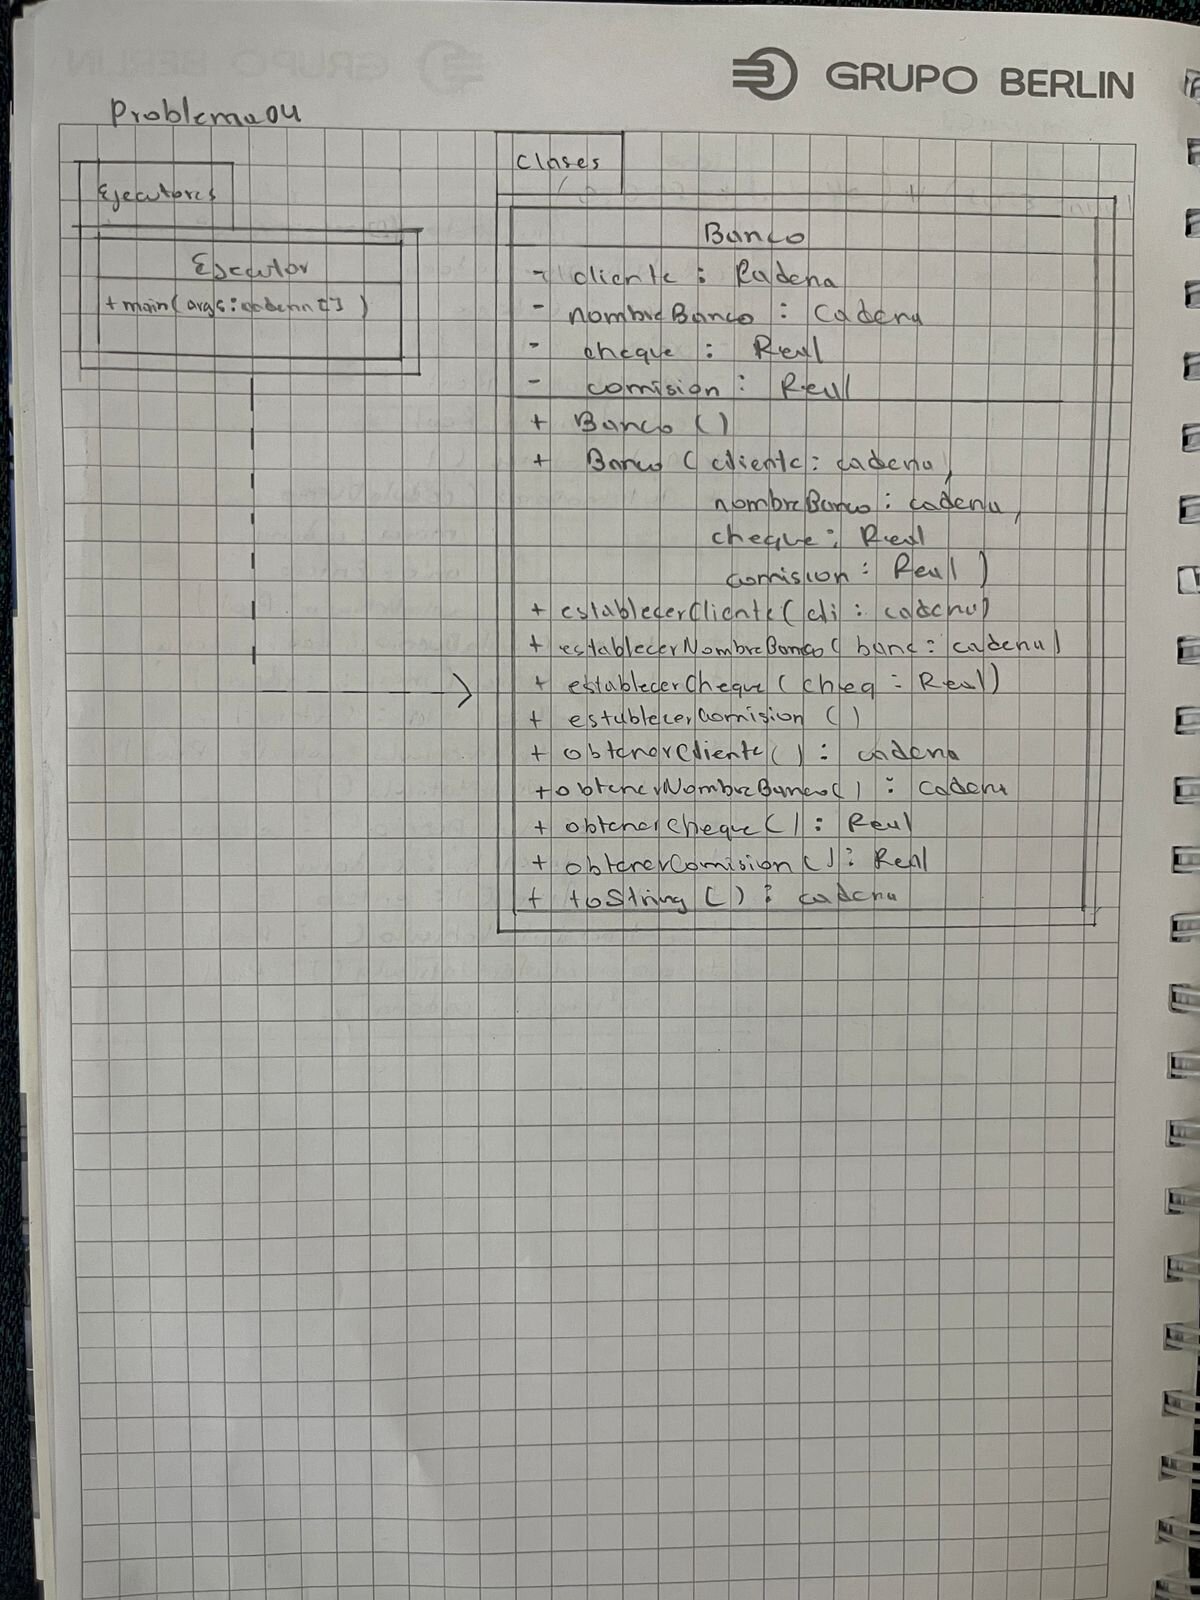 GRUPO BERLIN
Problema04
Ejecutores
Ejecutor
+ main(args: cadena [] )
Clases
Banco
- cliente : Cadena
- nombreBanco : Cadena
- cheque : Real
- comision : Real
+ Banco ( )
+ Banco ( cliente : cadena,
nombreBanco : cadena,
cheque : Real
comision : Real )
+ establecerCliente( cli : cadena)
+ establecerNombreBanco( banc : cadena)
+ establecerCheque ( cheq : Real)
+ establecerComision ( )
+ obtenerCliente( ) : cadena
+ obtenerNombreBanco( ) : cadena
+ obtenerCheque ( ) : Real
+ obtenerComision ( ) : Real
+ toString ( ) : cadena